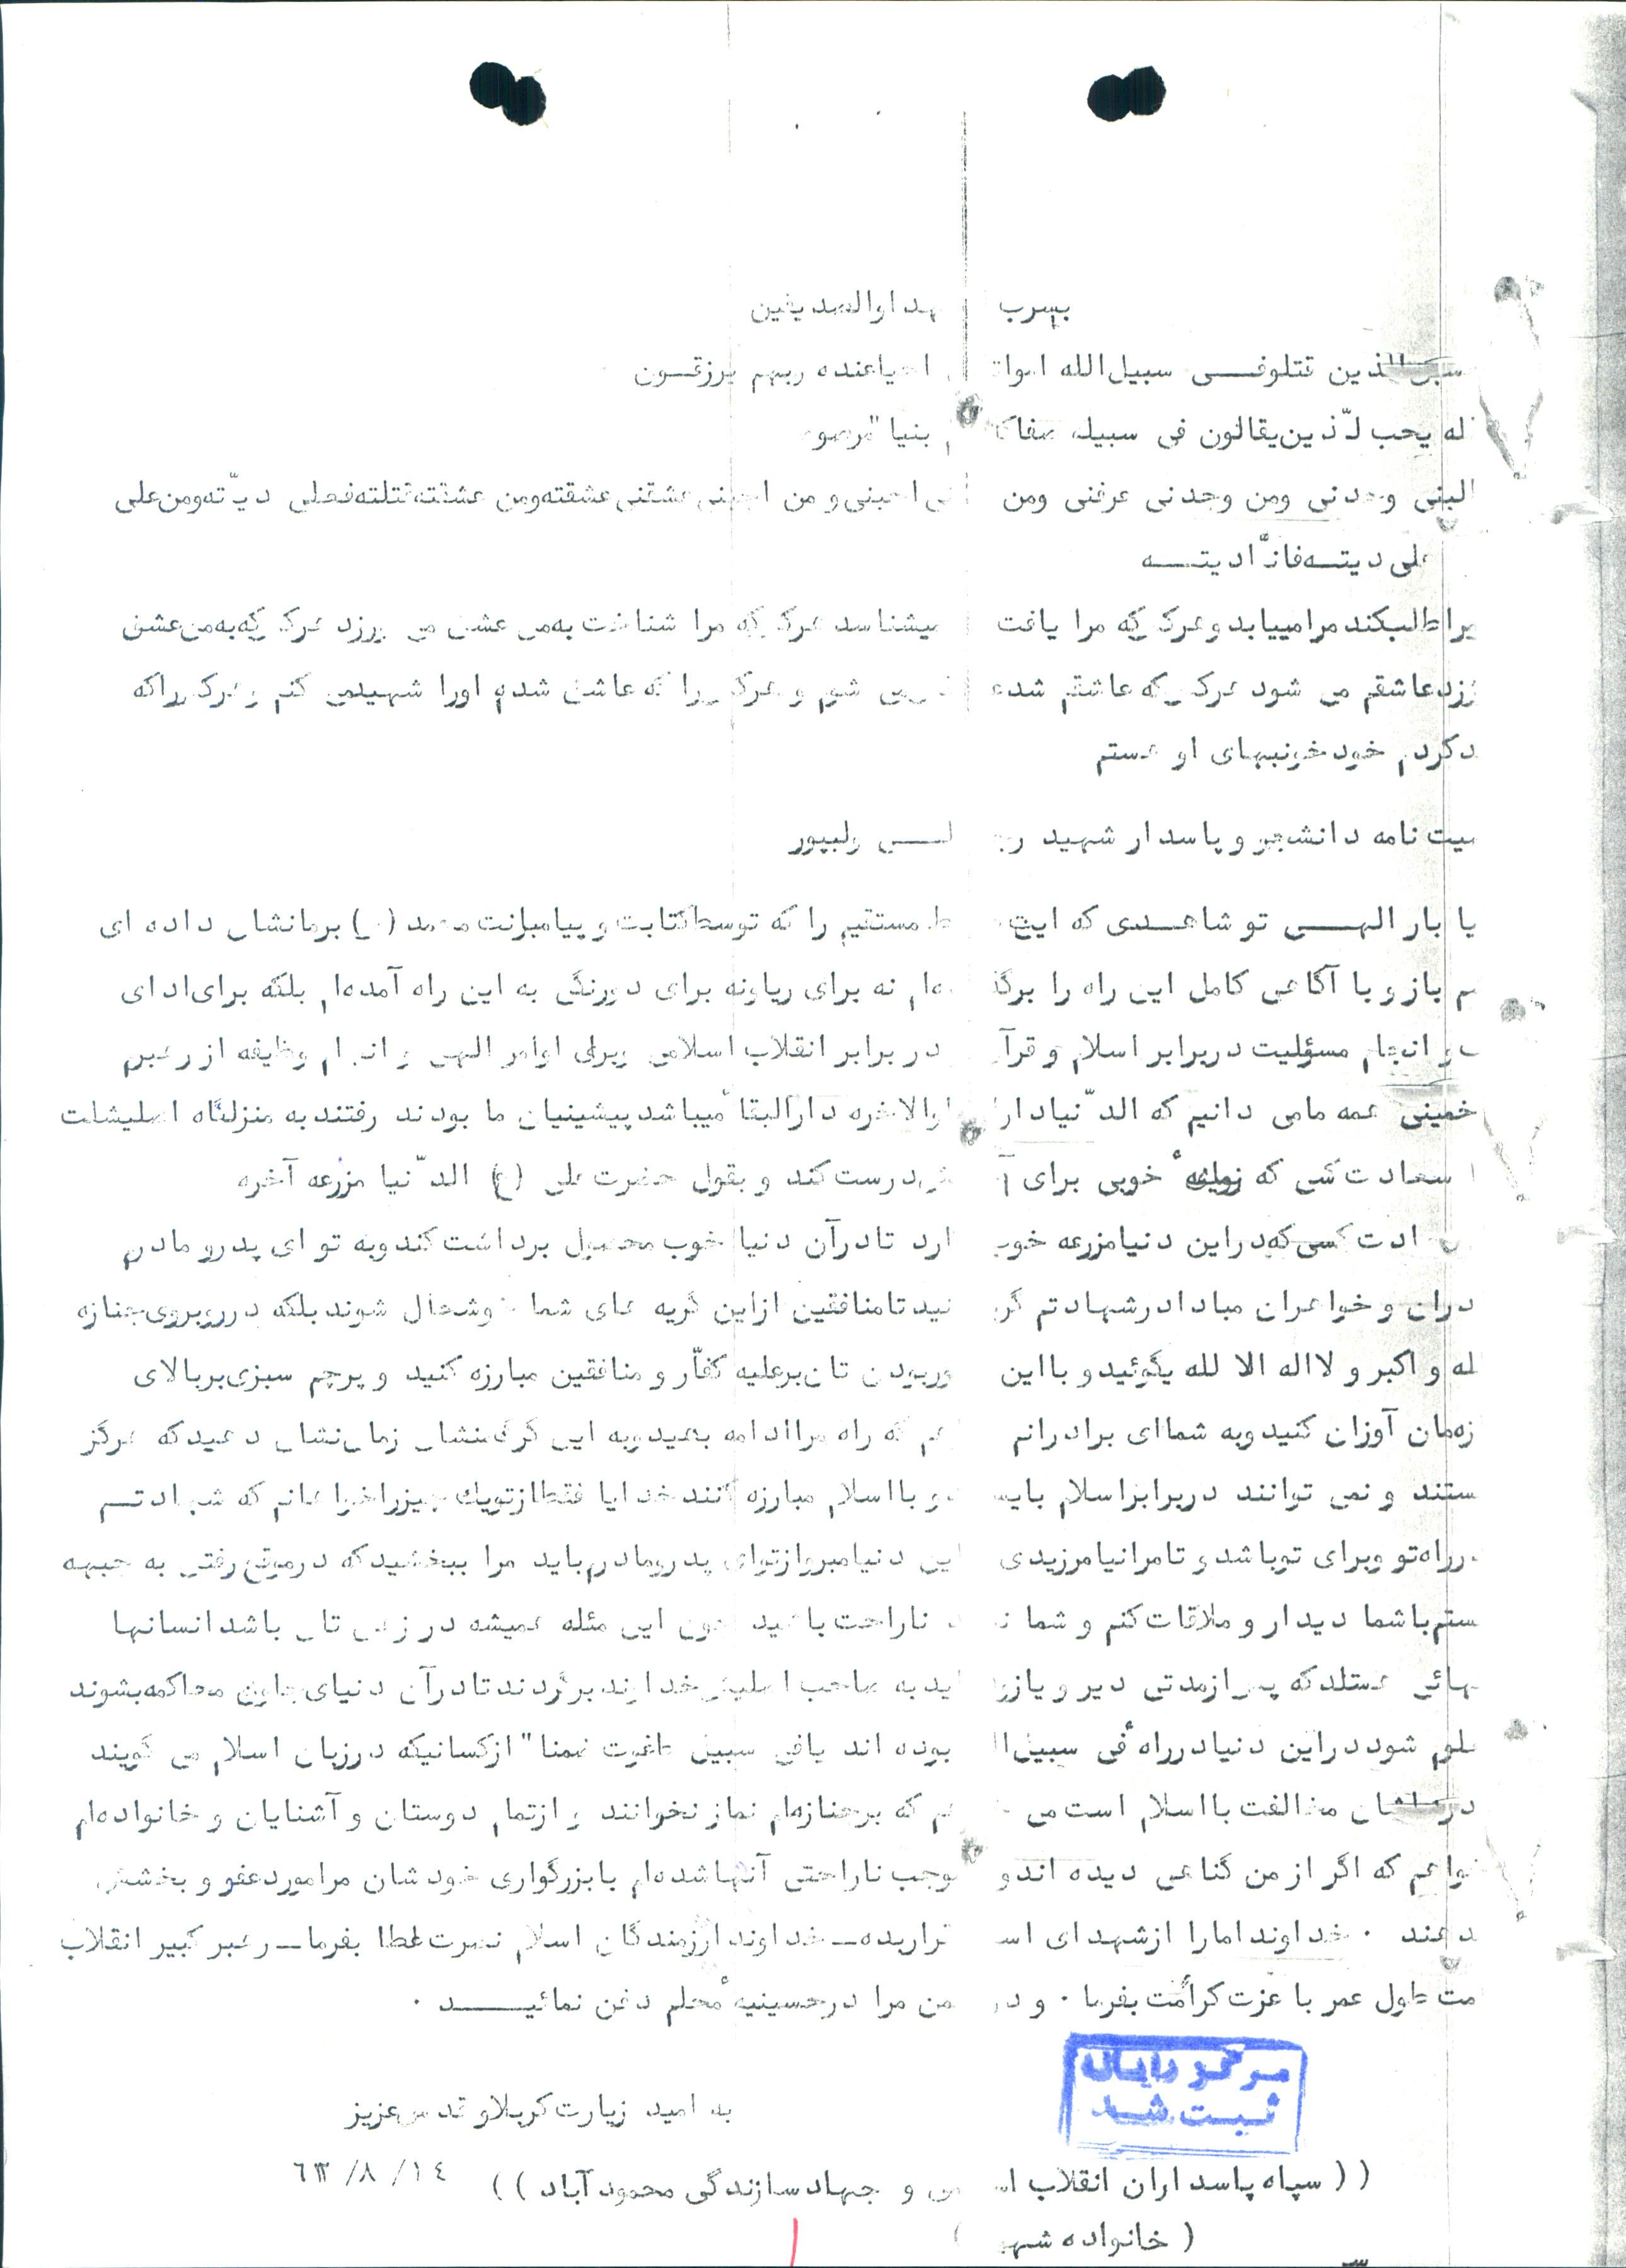 بسرب هداوالصدیقین
الذین قتلوفی سبیل‌الله اموات احیاعنده ربهم یرزقون
له یحب لّذین‌یقالون فی سبیله صفاکا بنیا"مرصو
وجدنی ومن وجدنی عرفنی ومن احبنی و من عشقنی عشقته‌ومن عشقته‌قتلته‌فعلی دیّته‌ومن‌علی
علی دیته‌فانّادیته
طلبکند مرامییابد وهرکس‌که مرا یافت میشناسد هرکس‌که مرا شناخت به‌من عشق می ورزد هرکس که‌به‌من‌عشق
رزدعاشقم می شود هرکس که عاشقم شد می شوم و هرکس را که عاشق شدم اورا شهیدمی کنم و هرکس راکه
دکردم خود خونبهای او هستم
یت نامه دانشجو و پاسدار شهید ولیپور
یا بار الهی تو شاهدی که این مستقیم را که توسط‌کتابت و پیامبرانت محمد (ص) برمانشان داده ای
م باز و با آگاهی کامل این راه را ه‌ام نه برای ریاونه برای دورنگی به این راه آمده‌ام بلکه برای‌ادای
و انجام مسؤلیت دربرابر اسلام و قرآن در برابر انقلاب اسلامی وبرای اوامر الهی و انجام وظیفه از رهبرم
خمینی همه مامی دانیم که الدّنیادار والاخره دارالبقا میباشد پیشینیان ما بودند رفتند به منزلگاه اصلیشان
سعادت کسی که زمینه خوبی برای درست کند و بقول حضرت علی (ع) الدّنیا مزرعه آخره
ادت کسی‌که‌دراین دنیامزرعه خوب ارد تادرآن دنیا خوب محصول برداشت‌کندوبه تو ای پدرو مادرم
دران و خواهران مبادادرشهادتم نید تامنافقین ازاین گریه های شما خوشحال شوند بلکه درروبروی‌جنازه
له و اکبر و لااله الا لله بگوئیدو بااین بودن تان‌برعلیه کفّار و منافقین مبارزه کنید و پرچم سبزی‌بربالای
آوزان کنیدوبه شماای برادرانم که راه مراادامه بدهیدوبه این گرگ‌منشان زمان‌نشان دهیدکه هرگز
ستند و نمی توانند دربرابراسلام بایستند و بااسلام مبارزه کنند خدایا فقط‌ازتویك چیزراخواهانم که شهادتم
درراه‌تو وبرای توباشد و تامرانیامرزیدی این دنیامبروازتوای پدرومادرم‌باید مرا ببخشیدکه درموقع رفتن به جبهه
ستم‌باشما دیدار و ملاقات‌کنم و شما ناراحت‌باشید چون این مئله همیشه در باشد انسانها
هائی هستندکه پس ازمدتی دیر و یازود باید به صاحب اصلیش خداوند برگردند تادرآن دنیای‌جاون محاکمه‌بشوند
علوم شوددراین دنیادرراه فی سبیل‌الله بوده اند یافی سبیل طاغوت ضمنا" ازکسانیکه درزبان اسلام می گویند
مخالفت بااسلام است‌می که برجنازه‌ام نماز نخوانند و ازتمام دوستان و آشنایان و خانواده‌ام
خواهم که اگر از من گناهی دیده اندو موجب ناراحتی آنها شده‌ام بابزرگواری خودشان مراموردعفو و بخشش
دهند ۰ خداوندامارا ازشهدای اسلام قراربده ـ خداوندارزمندگان اسلام نصرت‌عطا بفرما ـ رهبر کبیر انقلاب
طول عمر با عزت کرامت بفرما ۰ و در من مرا درحسینیه محلم دفن نمائید ۰
مرکز رایانه
ثبت شد
به امید زیارت کربلاو قدس‌عزیز
(( سپاه پاسداران انقلاب اسلامی و جهادسازندگی محمودآباد )) ٦٣/٨/١٤
( خانواده شهید )